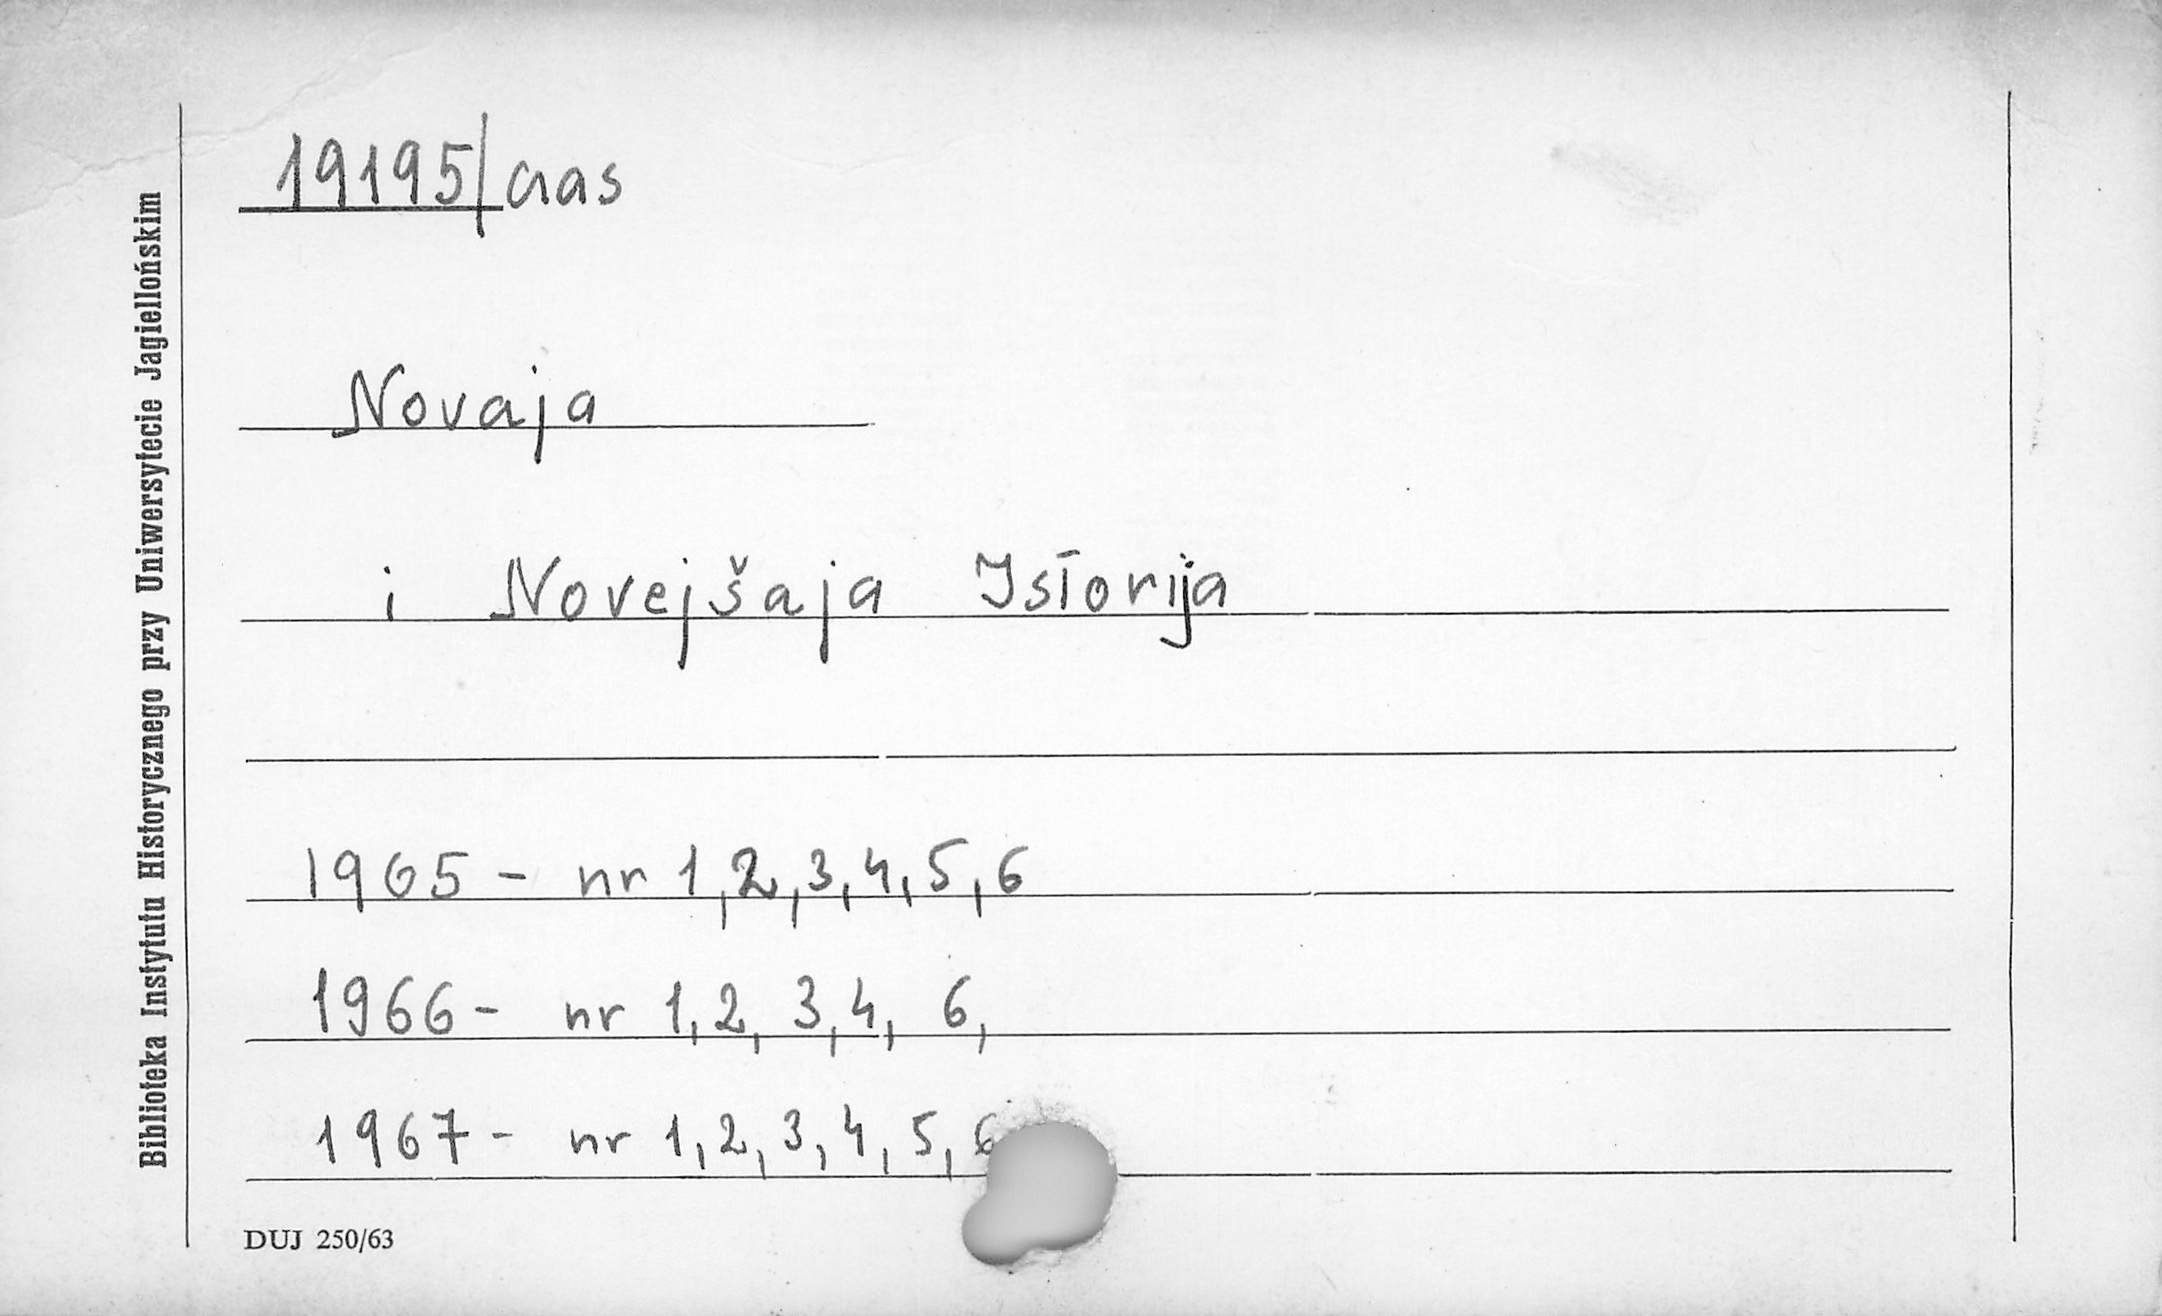 19195/aas
Novaja
i Novejšaja Istorija
1965 - nr 1,2,3,4,5,6
1966 - nr 1,2,3,4, 6,
1967 - nr 1,2,3,4,5,6
DUJ 250/63
Biblioteka Instytutu Historycznego przy Uniwersytecie Jagiellońskim